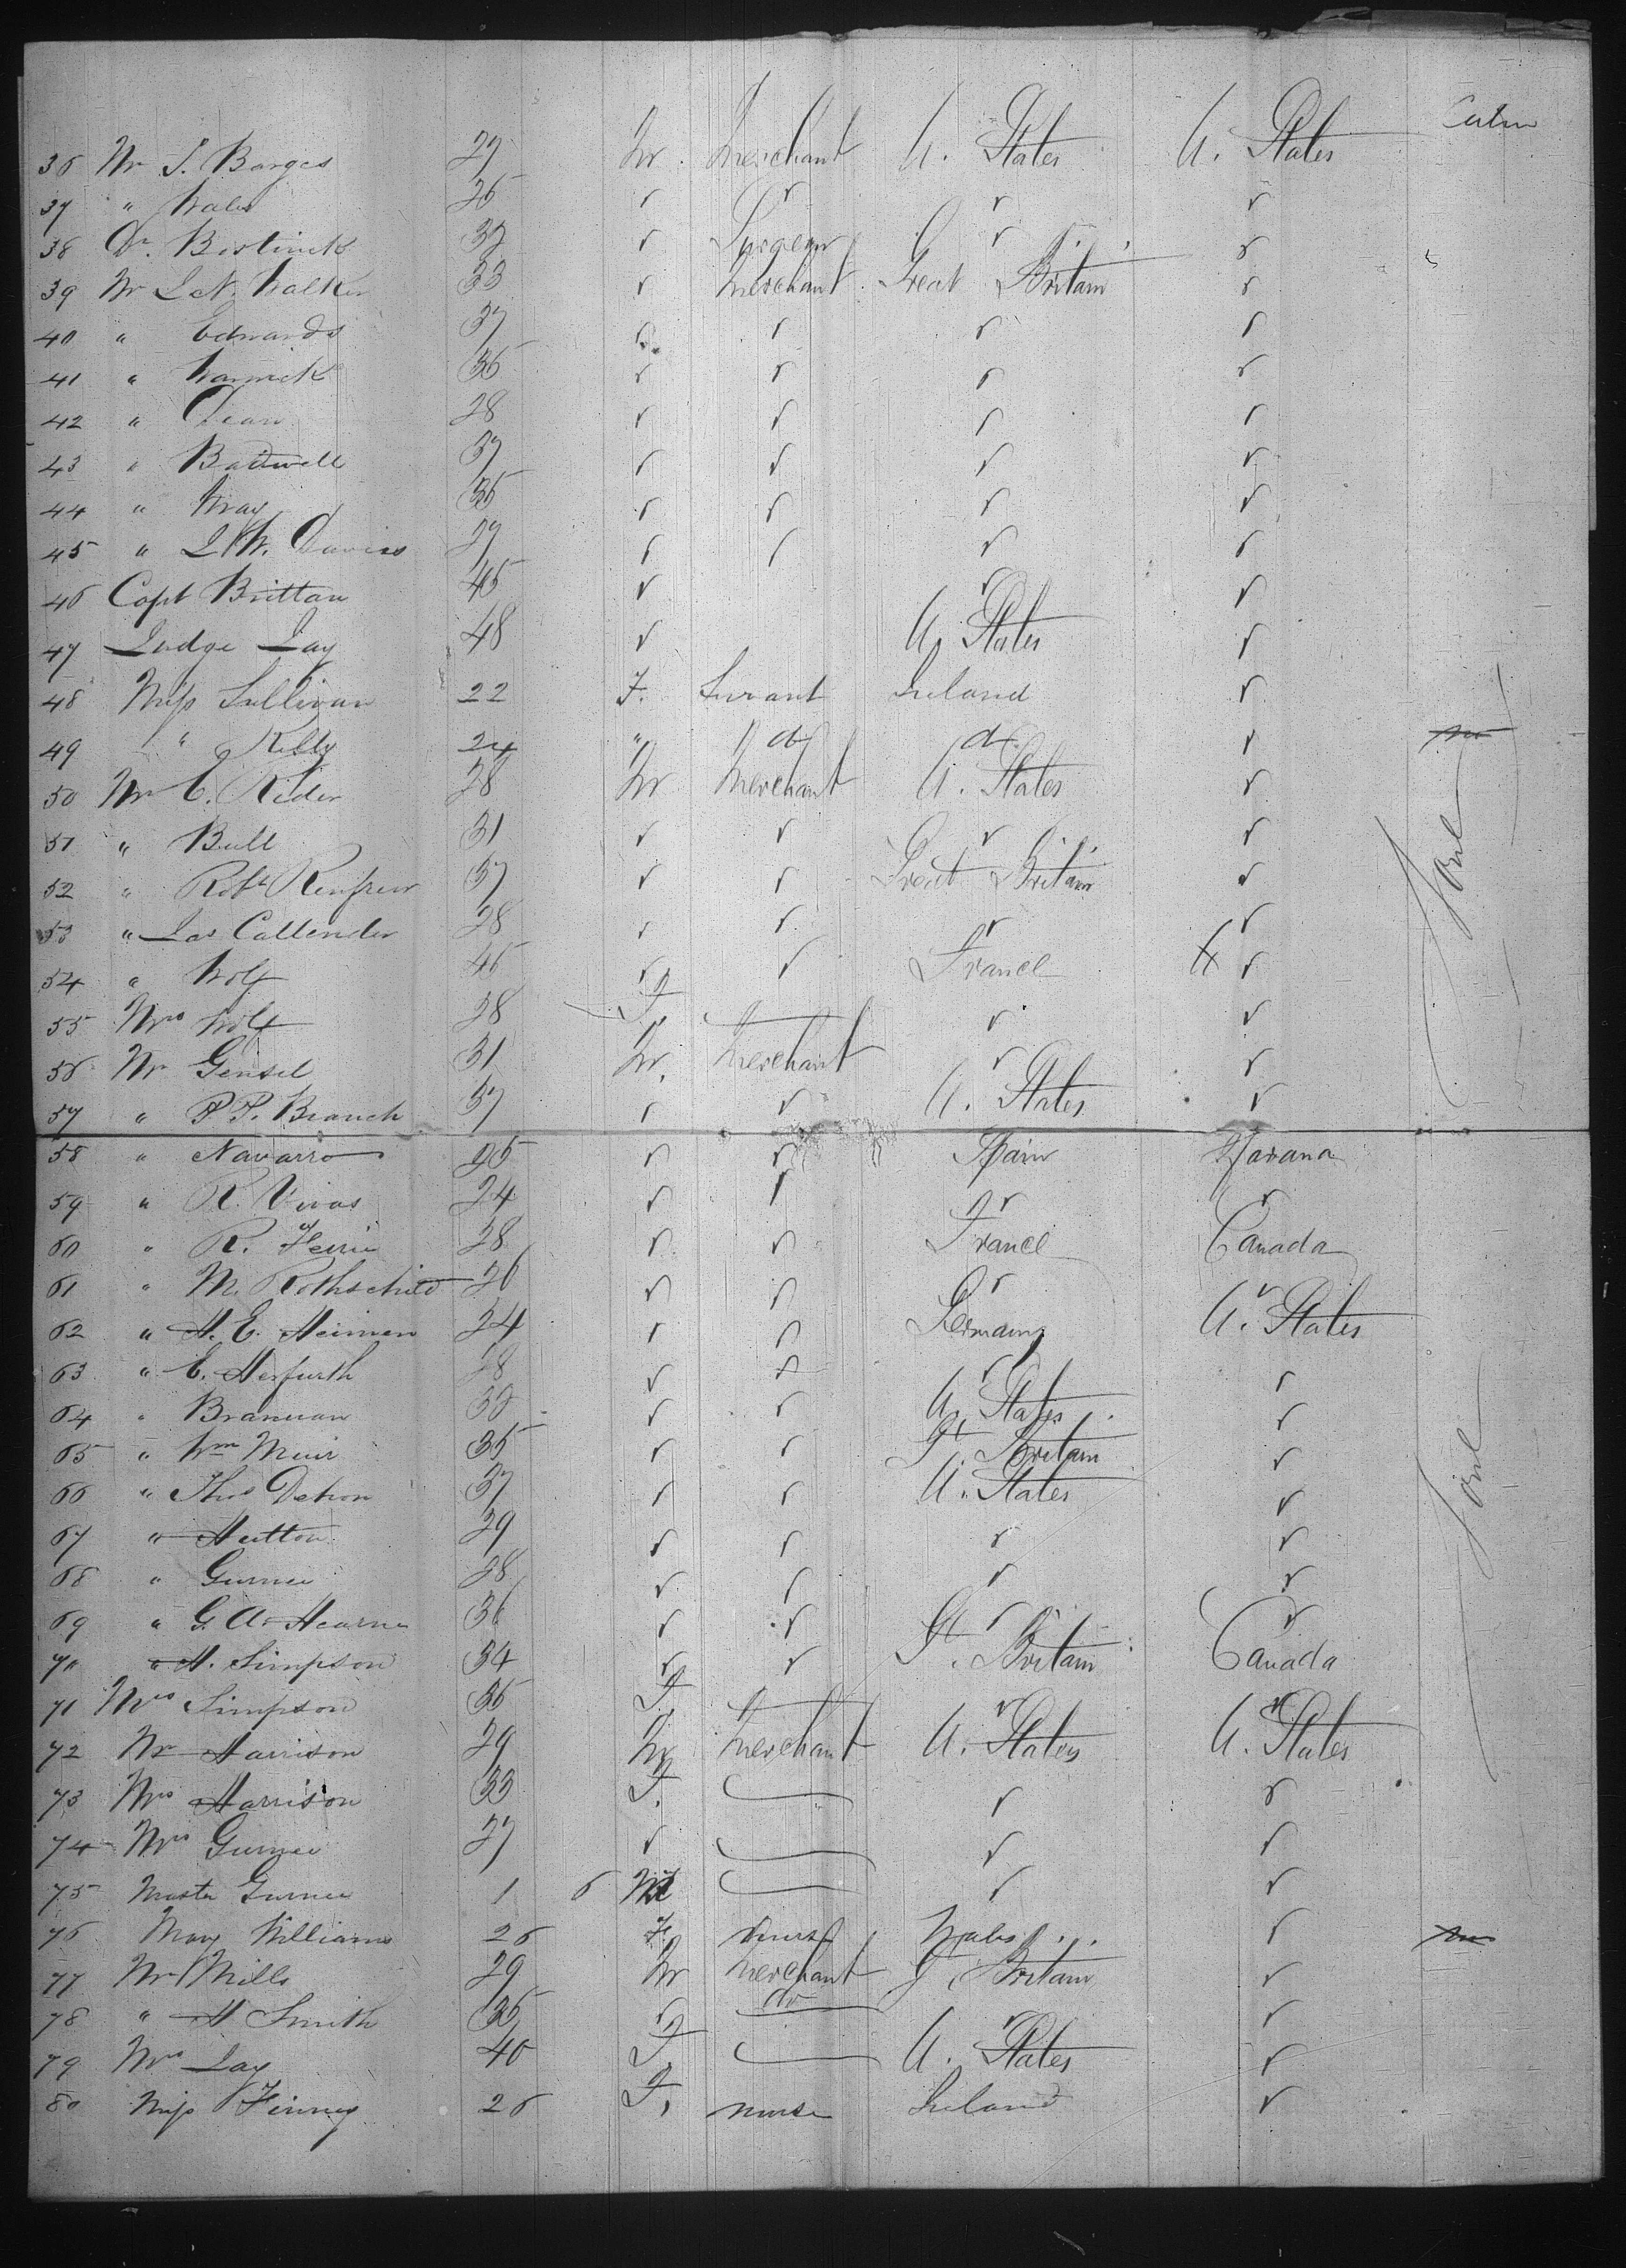 Cabin
36 Mr S. Barges 27 M. Merchant U. States U. States
37 " Wales 26 r r r r
38 Dr. Bostwick 37 r Surgeon r r
39 Mr L.N. Walker 33 r Merchant Great Britain r
40 " Edwards 37 r r r r
41 " Warwick 36 r r r r
42 " Dean 28 r r r r
43 " Badwell 37 r r r r
44 " Way 35 r r r r
45 " L.W. Daviss 27 r r r r
46 Capt Brittan 45 r r r
47 Judge Lay 48 r U. States r
48 Miss Sullivan 22 F. Servant Ireland r
49 " Kelly 24 " do do r
50 Mr C. Rider 28 M Merchant U. States r
51 " Bull 31 r r r r
52 " Robt Renfrew 37 r r Great Britain r
53 " Jas Callender 28 r r r r
54 " Wolf 45 r r France r
55 Mrs Wolf 28 F. r r
56 Mr Gensel 31 M. Merchant r r
57 " P.P. Branch 37 r r U. States r
58 " Navarro 25 r r Spain Havana
59 " R. Vivas 24 r r r r
60 " R. Ferrie 28 r r France Canada
61 " M. Rothschild 26 r r r r
62 " H. E. Heiman 24 r r Germany U. States
63 " E. Herfurth 28 r r r r
64 " Branuan 35 r r U. States r
65 " Wm Muir 35 r r Gt. Britain r
66 " Thos Dehon 37 r r U. States r
67 " Hutton 29 r r r r
68 " Gurnee 28 r r r r
69 " G. A. Hearne 36 r r r r
70 " H. Simpson 34 r r Gt. Britain Canada
71 Mrs Simpson 35 F. r r
72 Mr Harrison 29 M Merchant U. States U. States
73 Mrs Harrison 33 F. r r
74 Mrs Gurnee 27 r r r
75 Master Gurnee 1 6 M r r
76 Mary Williams 26 F. nurse Wales r
77 Mr Mills 29 M Merchant G. Britain r
78 " H Smith 35 r do r r
79 Mrs Lay 40 F. U. States r
80 Miss Finney 26 F. nurse Ireland r